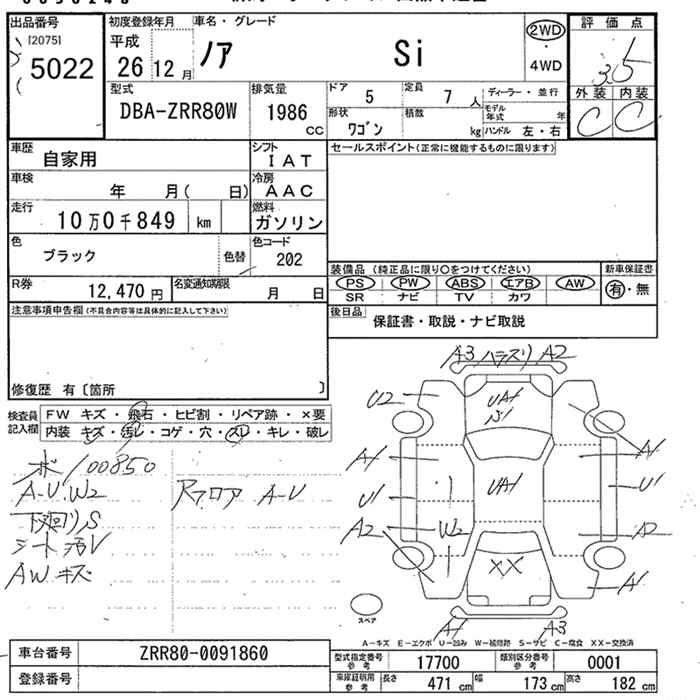 出品番号 初度登録年月 車名・グレード 評価点
[2075] 平成 2WD
5022 26 12月 ノア Si 3.5
4WD
型式 排気量 ドア 5 定員 7人 ディーラー・並行 外装 内装
DBA-ZRR80W 1986 CC 形状 ワゴン 積数 kg モデル年式 年 C C
ハンドル 左・右
車歴 自家用 シフト IAT セールスポイント(正常に機能するものに限ります)
車検 年 月( 日) 冷房 AAC
走行 10万0千849 km 燃料 ガソリン
色 ブラック 色替 色コード 202
装備品 (純正品に限り○をつけてください) 新車保証書
R券 12,470円 名変通知期限 月 日 PS PW ABS エアB AW 有・無
SR ナビ TV カワ
注意事項申告欄(不具合内容等は具体的に記入して下さい) 後日品 保証書・取説・ナビ取説
修復歴 有〔箇所 〕
検査員記入欄 FW キズ・飛石・ヒビ割・リペア跡・×要
内装 キズ・汚レ・コゲ・穴・スレ・キレ・破レ
A3 ハラスリ A2
U2 UA1
A1 A1
ボ 100850
A-U.W2 Rフロア A-U U1 UA1 U1
下廻りS A2 W2 A2
シート汚レ
AWキズ XX A1
スペア A1 A3
A-キズ E-エクボ U-凹み W-補修跡 S-サビ C-腐食 XX-交換済
車台番号 ZRR80-0091860 型式指定番号 参考 17700 類別区分番号 参考 0001
登録番号 車庫証明用 参考 長さ 471 cm 幅 173 cm 高さ 182 cm